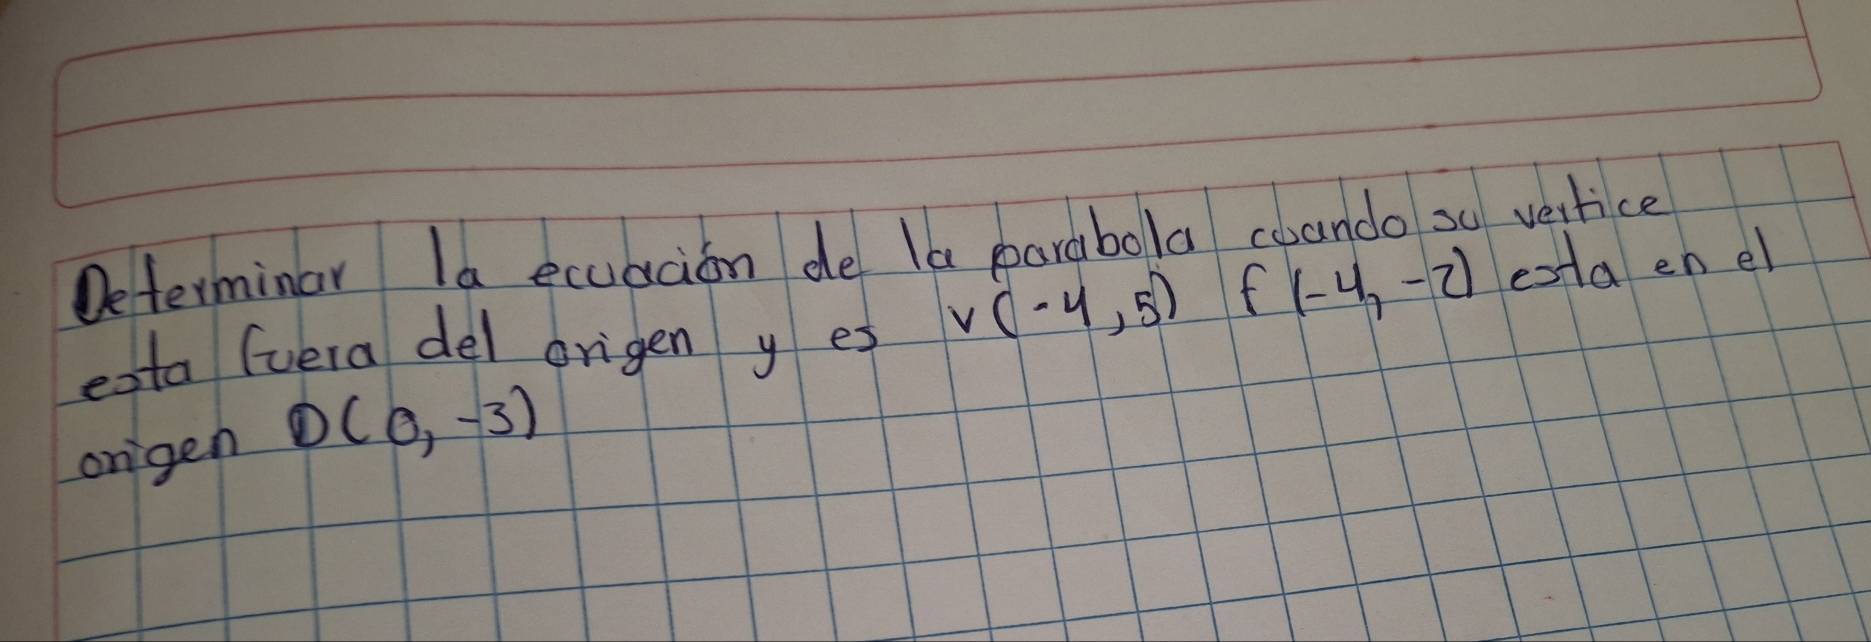 Determinar la ecuación de la parabola cuando su vertice
esta fuera del origen y es v(-4,5) f(-4,-2) esta en el
origen D(0,-3)